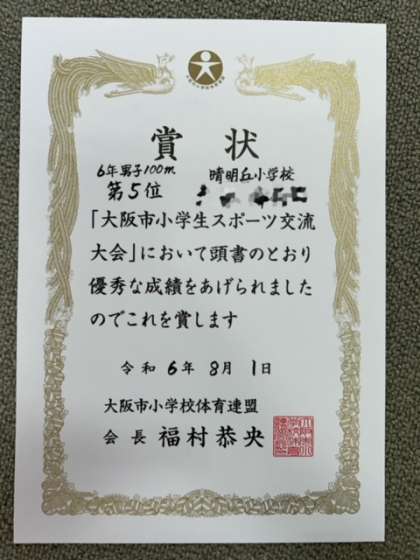 賞状
6年男子100m 晴明丘小学校
第5位
「大阪市小学生スポーツ交流
大会」において頭書のとおり
優秀な成績をあげられました
のでこれを賞します
令和6年8月1日
大阪市小学校体育連盟
会長 福村恭央